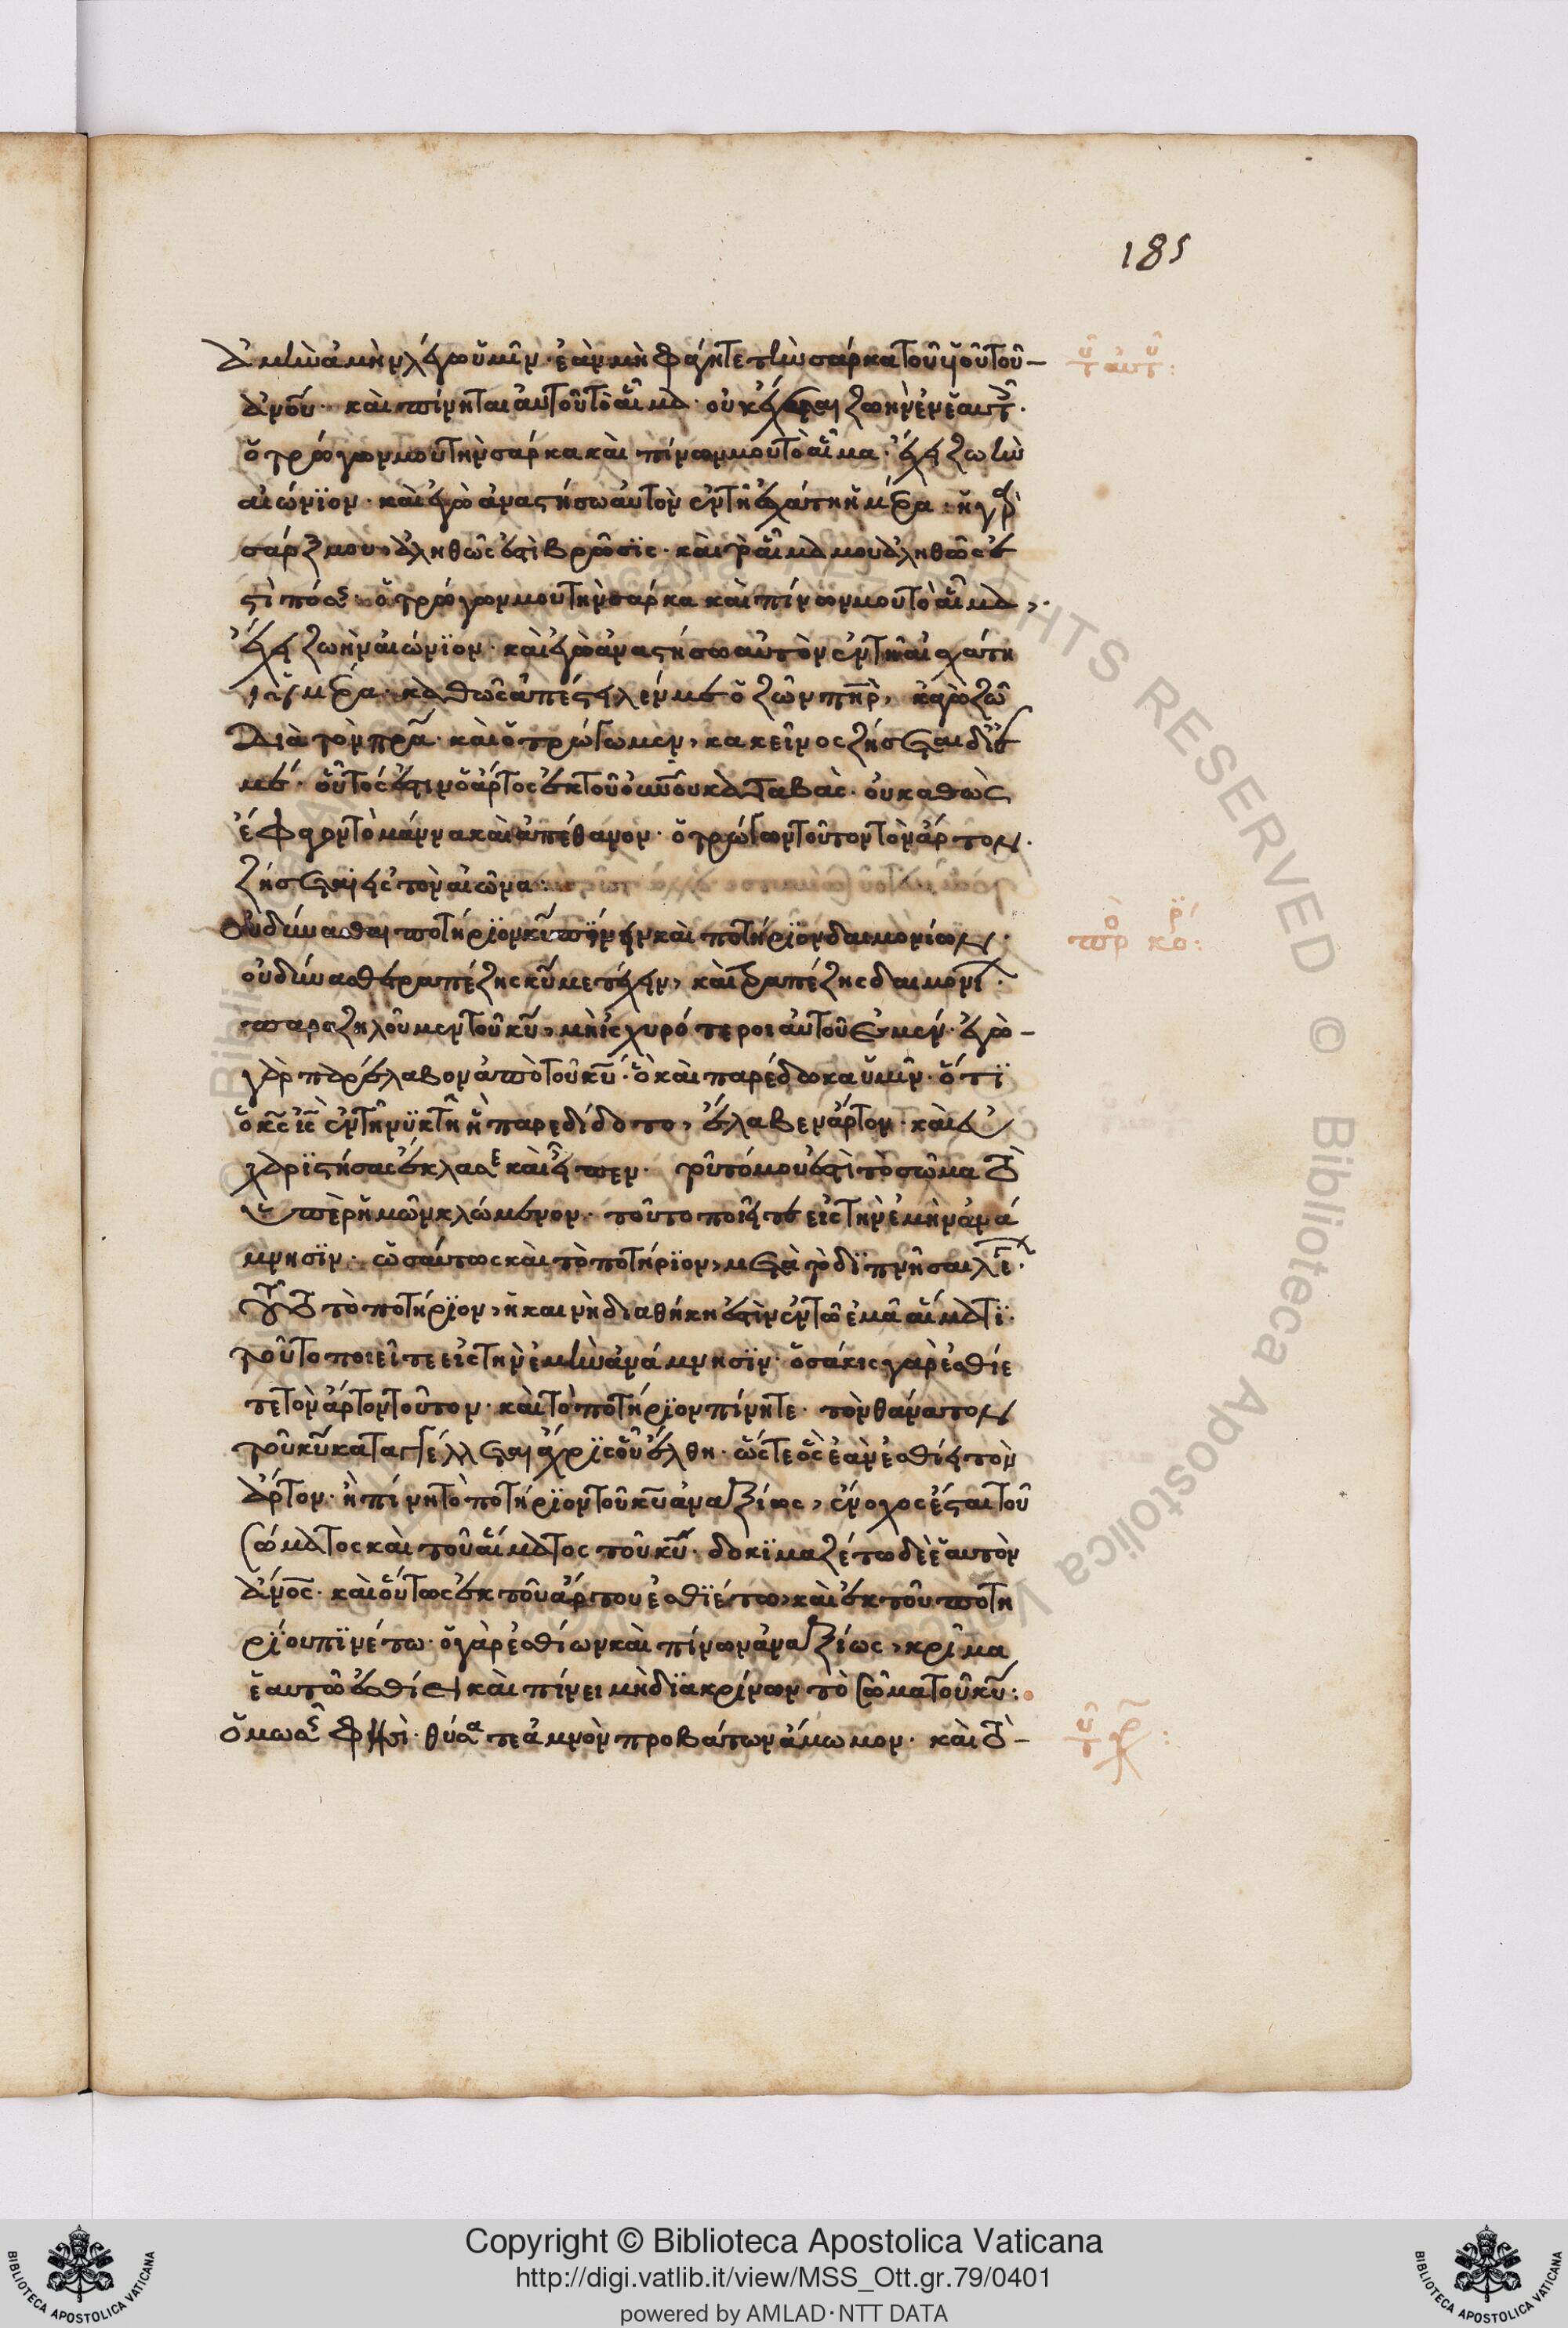 185
ἀμὴν ἀμὴν λέγω ὑμῖν· ἐὰν μὴ φάγητε τὴν σάρκα τοῦ υἱοῦ τοῦ
τοῦ αὐτοῦ:
ἀνου· καὶ πίνηται αὐτοῦ τὸ αἷμα· οὐκ ἔχεται ζωὴν ἐν ἑαυτ·
ὁ τρώγων μου τὴν σάρκα καὶ πίνων μου τὸ αἷμα· ἔχει ζωὴν
αἰώνϊον· καὶ ἐγὼ ἀναστήσω αὐτὸν ἐν τῆ ἐσχάτη ἡμέρα: ἡ γὰρ
σάρξ μου, ἀληθῶς ἐστὶ βρῶσϊς· καὶ τὸ αἷμά μου ἀληθῶς ἐ
στὶ πόσις· ὁ τρώγων μου τὴν σάρκα καὶ πίνων μου τὸ αἷμα,
ἔχει ζωὴν αἰώνϊον· καὶ ἐγὼ ἀναστήσω αὐτὸν ἐν τῆ αἰσχάτη
ἡμέρα· καθῶς ἀπέστειλέν με ὁ ζῶν πηρ, κἀγὼ ζῶ
διὰ τὸν πρα· καὶ ὁ τρώγων με, κακεῖνος ζήσεται δι' ἐ
μέ· οὗτός ἐστιν ὁ ἄρτος ἐκ τοῦ οὐνου καταβὰς· οὐ καθὼς
ἔφαγον τὸ μάννα καὶ ἀπέθανον· ὁ τρώγων τοῦτον τὸν ἄρτον·
ζήσεται εἰς τὸν αἰῶνα:
οὐ δύνασθαι ποτήρϊον κυ πίνειν καὶ ποτήρϊον δαιμονίων·
πρὸ κορ:
οὐ δύνασθε τραπέζης κυ μετέχειν, καὶ τραπέζης δαιμονι·
παραζηλοῦμεν τοῦ κυ, μὴ ἰσχυρότεροι αὐτοῦ ἐσμέν· ἐγὼ
γὰρ παρέλαβον ἀπὸ τοῦ κυ· ὃ καὶ παρέδωκα ὑμῖν· ὅτϊ
ὁ κς ις ἐν τῆ νϋκτῆ ἧ παρεδίδοτο, ἔλαβεν ἄρτον· καὶ εὐ
χαρϊστήσας ἔκλασε καὶ εἶπεν· τοῦτό μου ἐστὶ τὸ σῶμα τὸ
ὑπὲρ ἡμῶν κλώμενον· τοῦτο ποιεῖτε εἰς τὴν ἐμὴν ἀνά
μνησϊν· ὡσαύτως καὶ τὸ ποτήρϊον, μετὰ τὸ δϊπνῆσαι λέ·
τοῦτο τὸ ποτήρϊον, ἡ καινὴ διαθήκη ἐστὶν ἐν τῶ ἐμῶ αἵματϊ·
τοῦτο ποιεῖτε εἰς τὴν ἐμὴν ἀνάμνησϊν· ὁσάκις γὰρ ἐσθίε
τε τὸν ἄρτον τοῦτον· καὶ τὸ ποτήρϊον πίνητε· τὸν θάνατον
τοῦ κυ καταγγέλλεται ἄχρϊς οὗ ἔλθη· ὥστε ὃς ἐὰν ἐσθίει τὸν
ἄρτον· ἢ πίνη τὸ ποτήρϊον τοῦ κυ ἀναξίως, ἔνοχος ἔσται τοῦ
σώματος καὶ τοῦ αἵματος τοῦ κυ· δοκϊμαζέτω δὲ ἑαυτὸν
ἄνος· καὶ οὕτως ἐκ τοῦ ἄρτου ἐσθϊέτω, καὶ ἐκ τοῦ ποτη
ρίου πϊνέτω· ὁ γὰρ ἐσθίων καὶ πίνων ἀναξίως, κρῖμα
ἑαυτῶ ἐσθίει καὶ πίνει μὴ δϊακρίνων τὸ σῶμα τοῦ κυ:
ὅμως φησὶ· θύσατε ἀμνὸν προβάτων ἄμωμον· καὶ τὸ
Copyright © Biblioteca Apostolica Vaticana
http://digi.vatlib.it/view/MSS_Ott.gr.79/0401
powered by AMLAD·NTT DATA